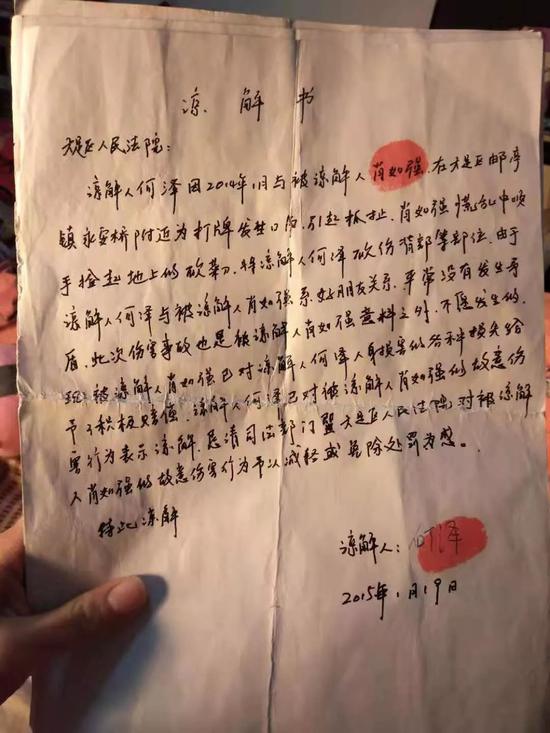 谅解书
大足区人民法院：
谅解人何泽因2014年1月与被谅解人肖如强，在大足区邮亭
镇永安桥附近为打牌发生口角，引起抓扯，肖如强慌乱中顺
手捡起地上的砍菜刀，将谅解人何泽砍伤背部等部位。由于
谅解人何泽与被谅解人肖如强系好朋友关系，平常没有发生矛
盾，此次伤害事故也是被谅解人肖如强意料之外，不愿发生的。
现被谅解人肖如强已对谅解人何泽人身损害的各种损失给
予了积极赔偿，谅解人何泽已对被谅解人肖如强的故意伤
害行为表示谅解，恳请司法部门暨大足区人民法院对被谅解
人肖如强的故意伤害行为予以减轻或免除处罚为感。
特此谅解
谅解人：何泽
2015年1月19日